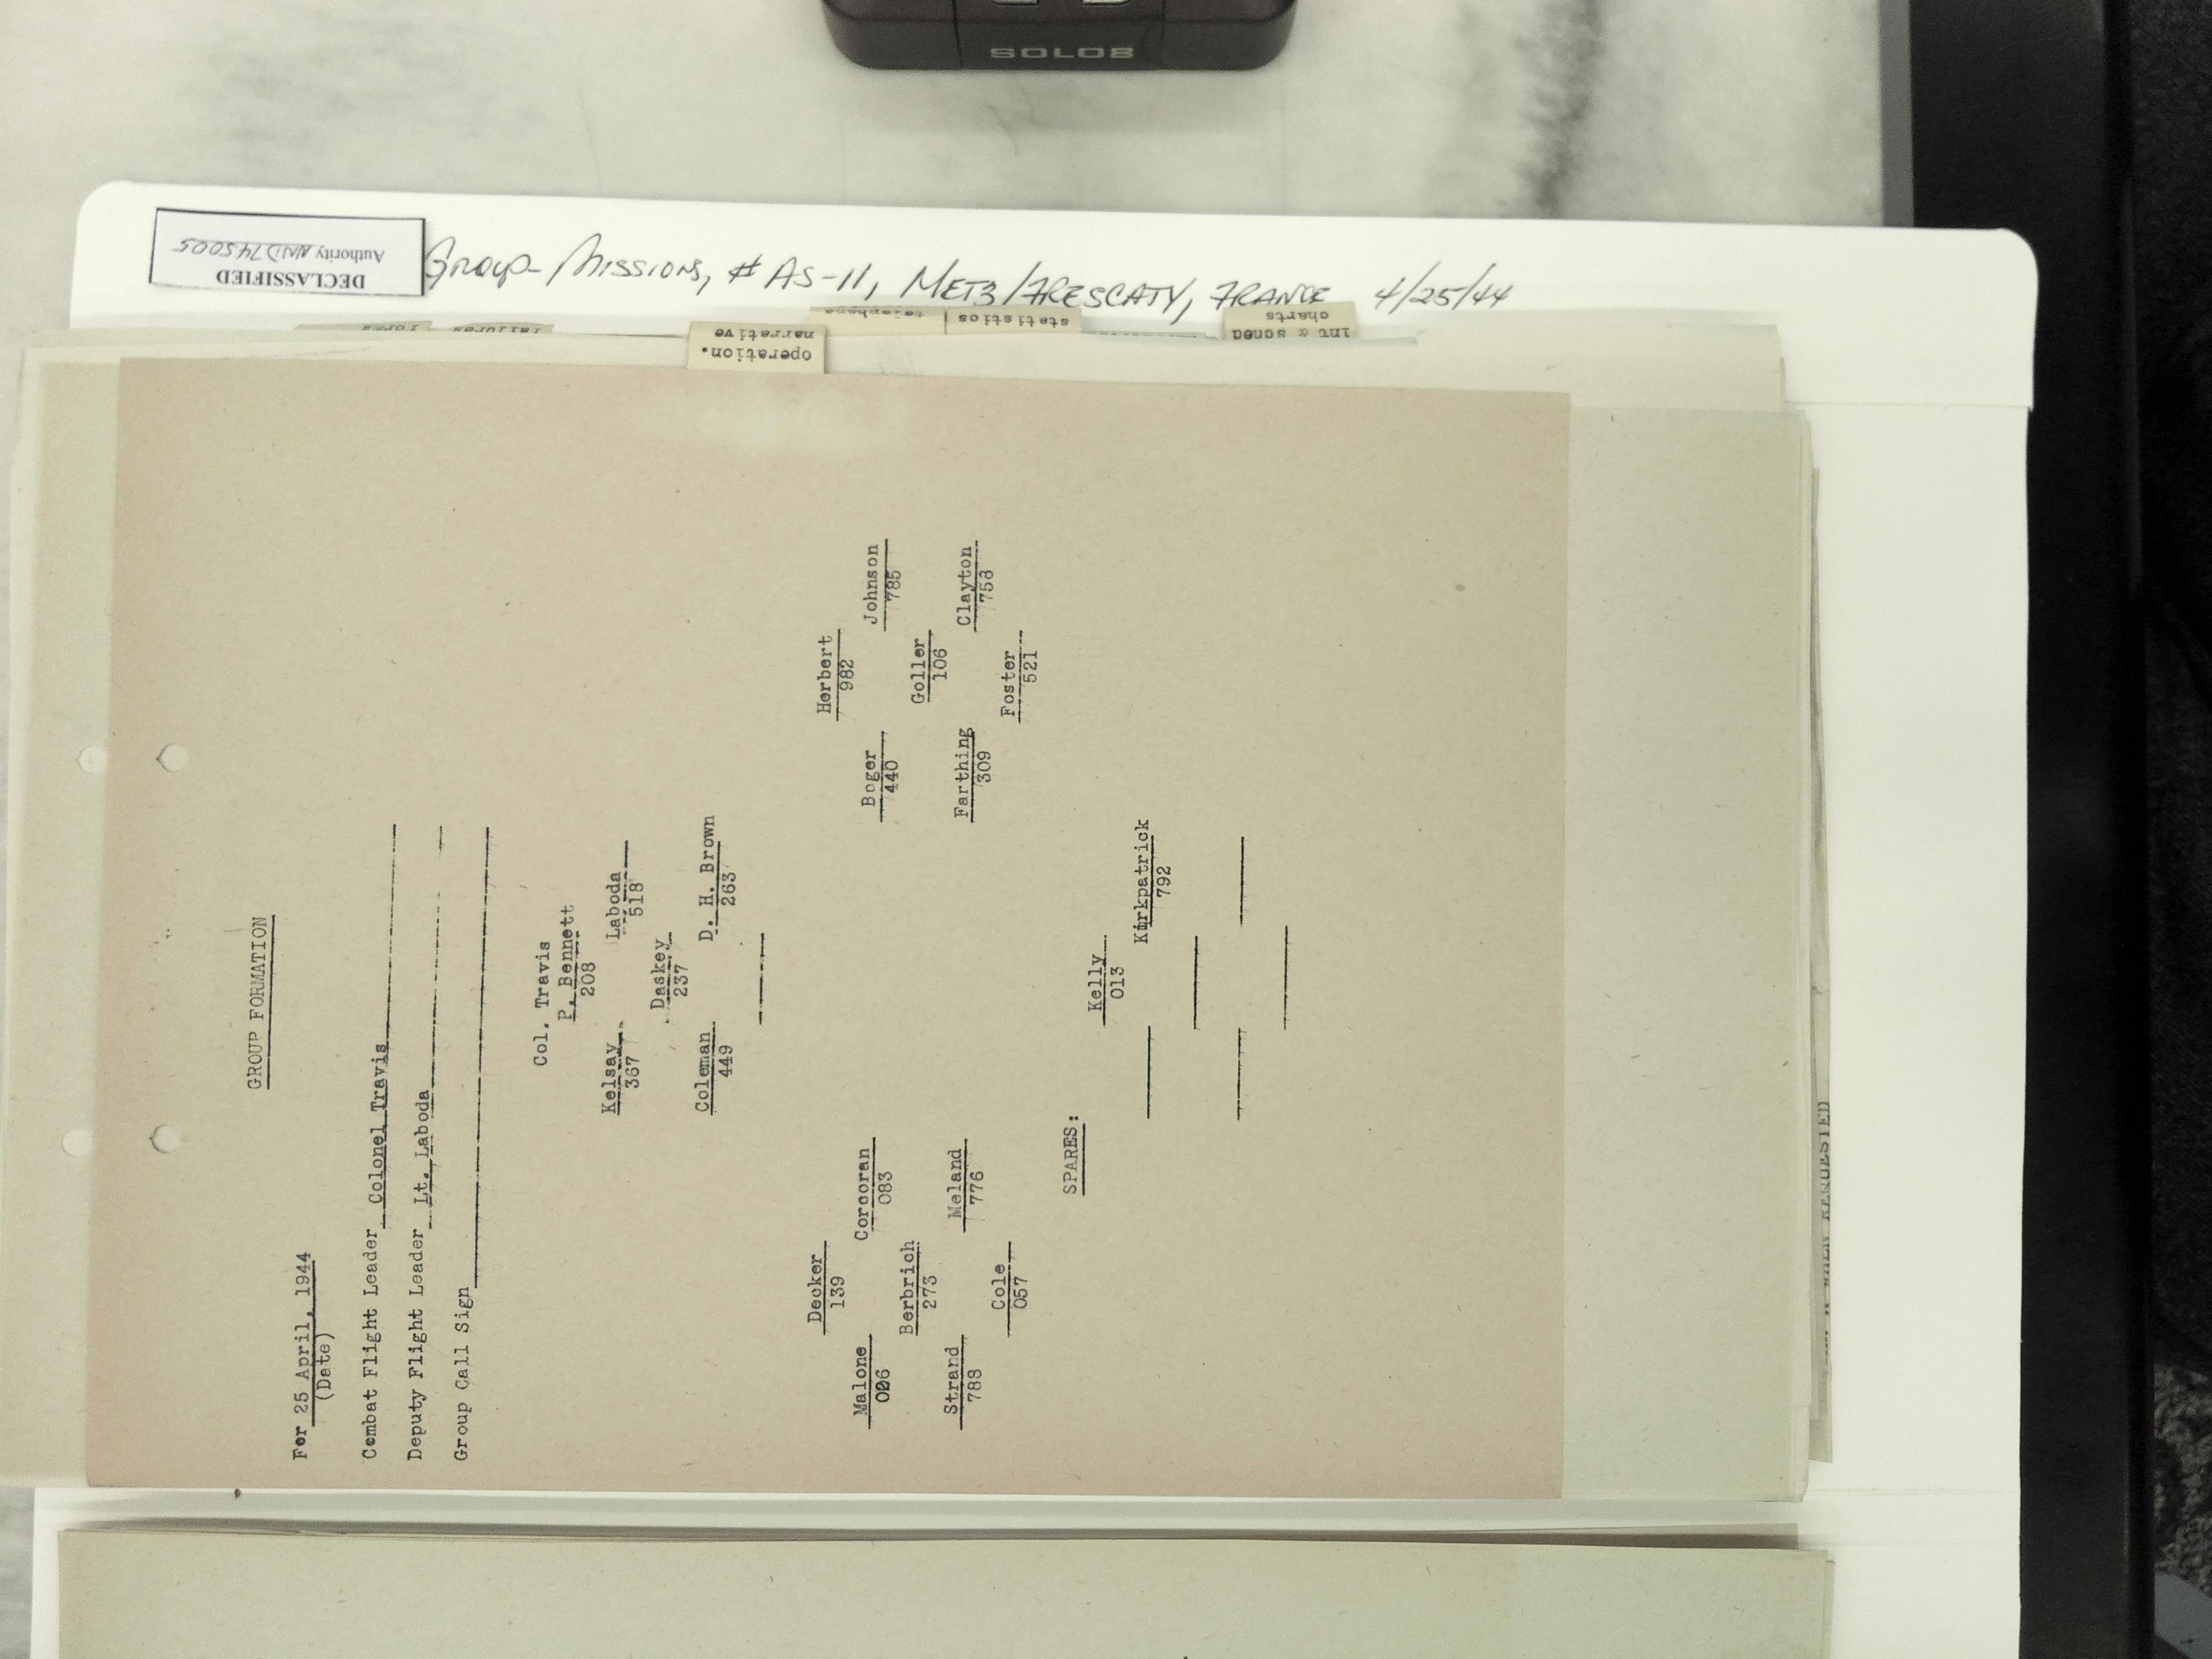 SOLO8
DECLASSIFIED
Authority NND 745005
Group-Missions, # AS-11, METZ/FRESCATY, FRANCE 4/25/44
failures
operation.
narrative
telephone
statistics
int & sched
charts
forms
GROUP FORMATION
For 25 April, 1944
(Date)
Combat Flight Leader Colonel Travis
Deputy Flight Leader Lt. Laboda
Group Call Sign
Col. Travis
P. Bennett
208
Kelsay Laboda
367 518
Daskey
237
Coleman D. H. Brown
449 263
Decker Herbert
139 982
Malone Corcoran Boger Johnson
006 083 440 785
Berbrich Goller
273 106
Strand Meland Farthing Clayton
788 776 309 758
Cole Foster
057 521
SPARES:
Kelly
013
Kirkpatrick
792